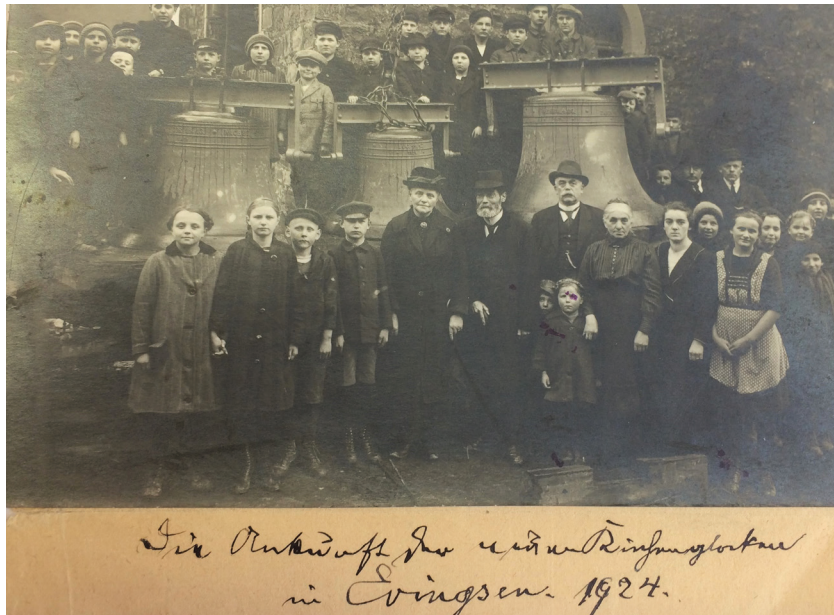 Die Ankunft der neuen Kirchenglocken
in Evingsen. 1924.